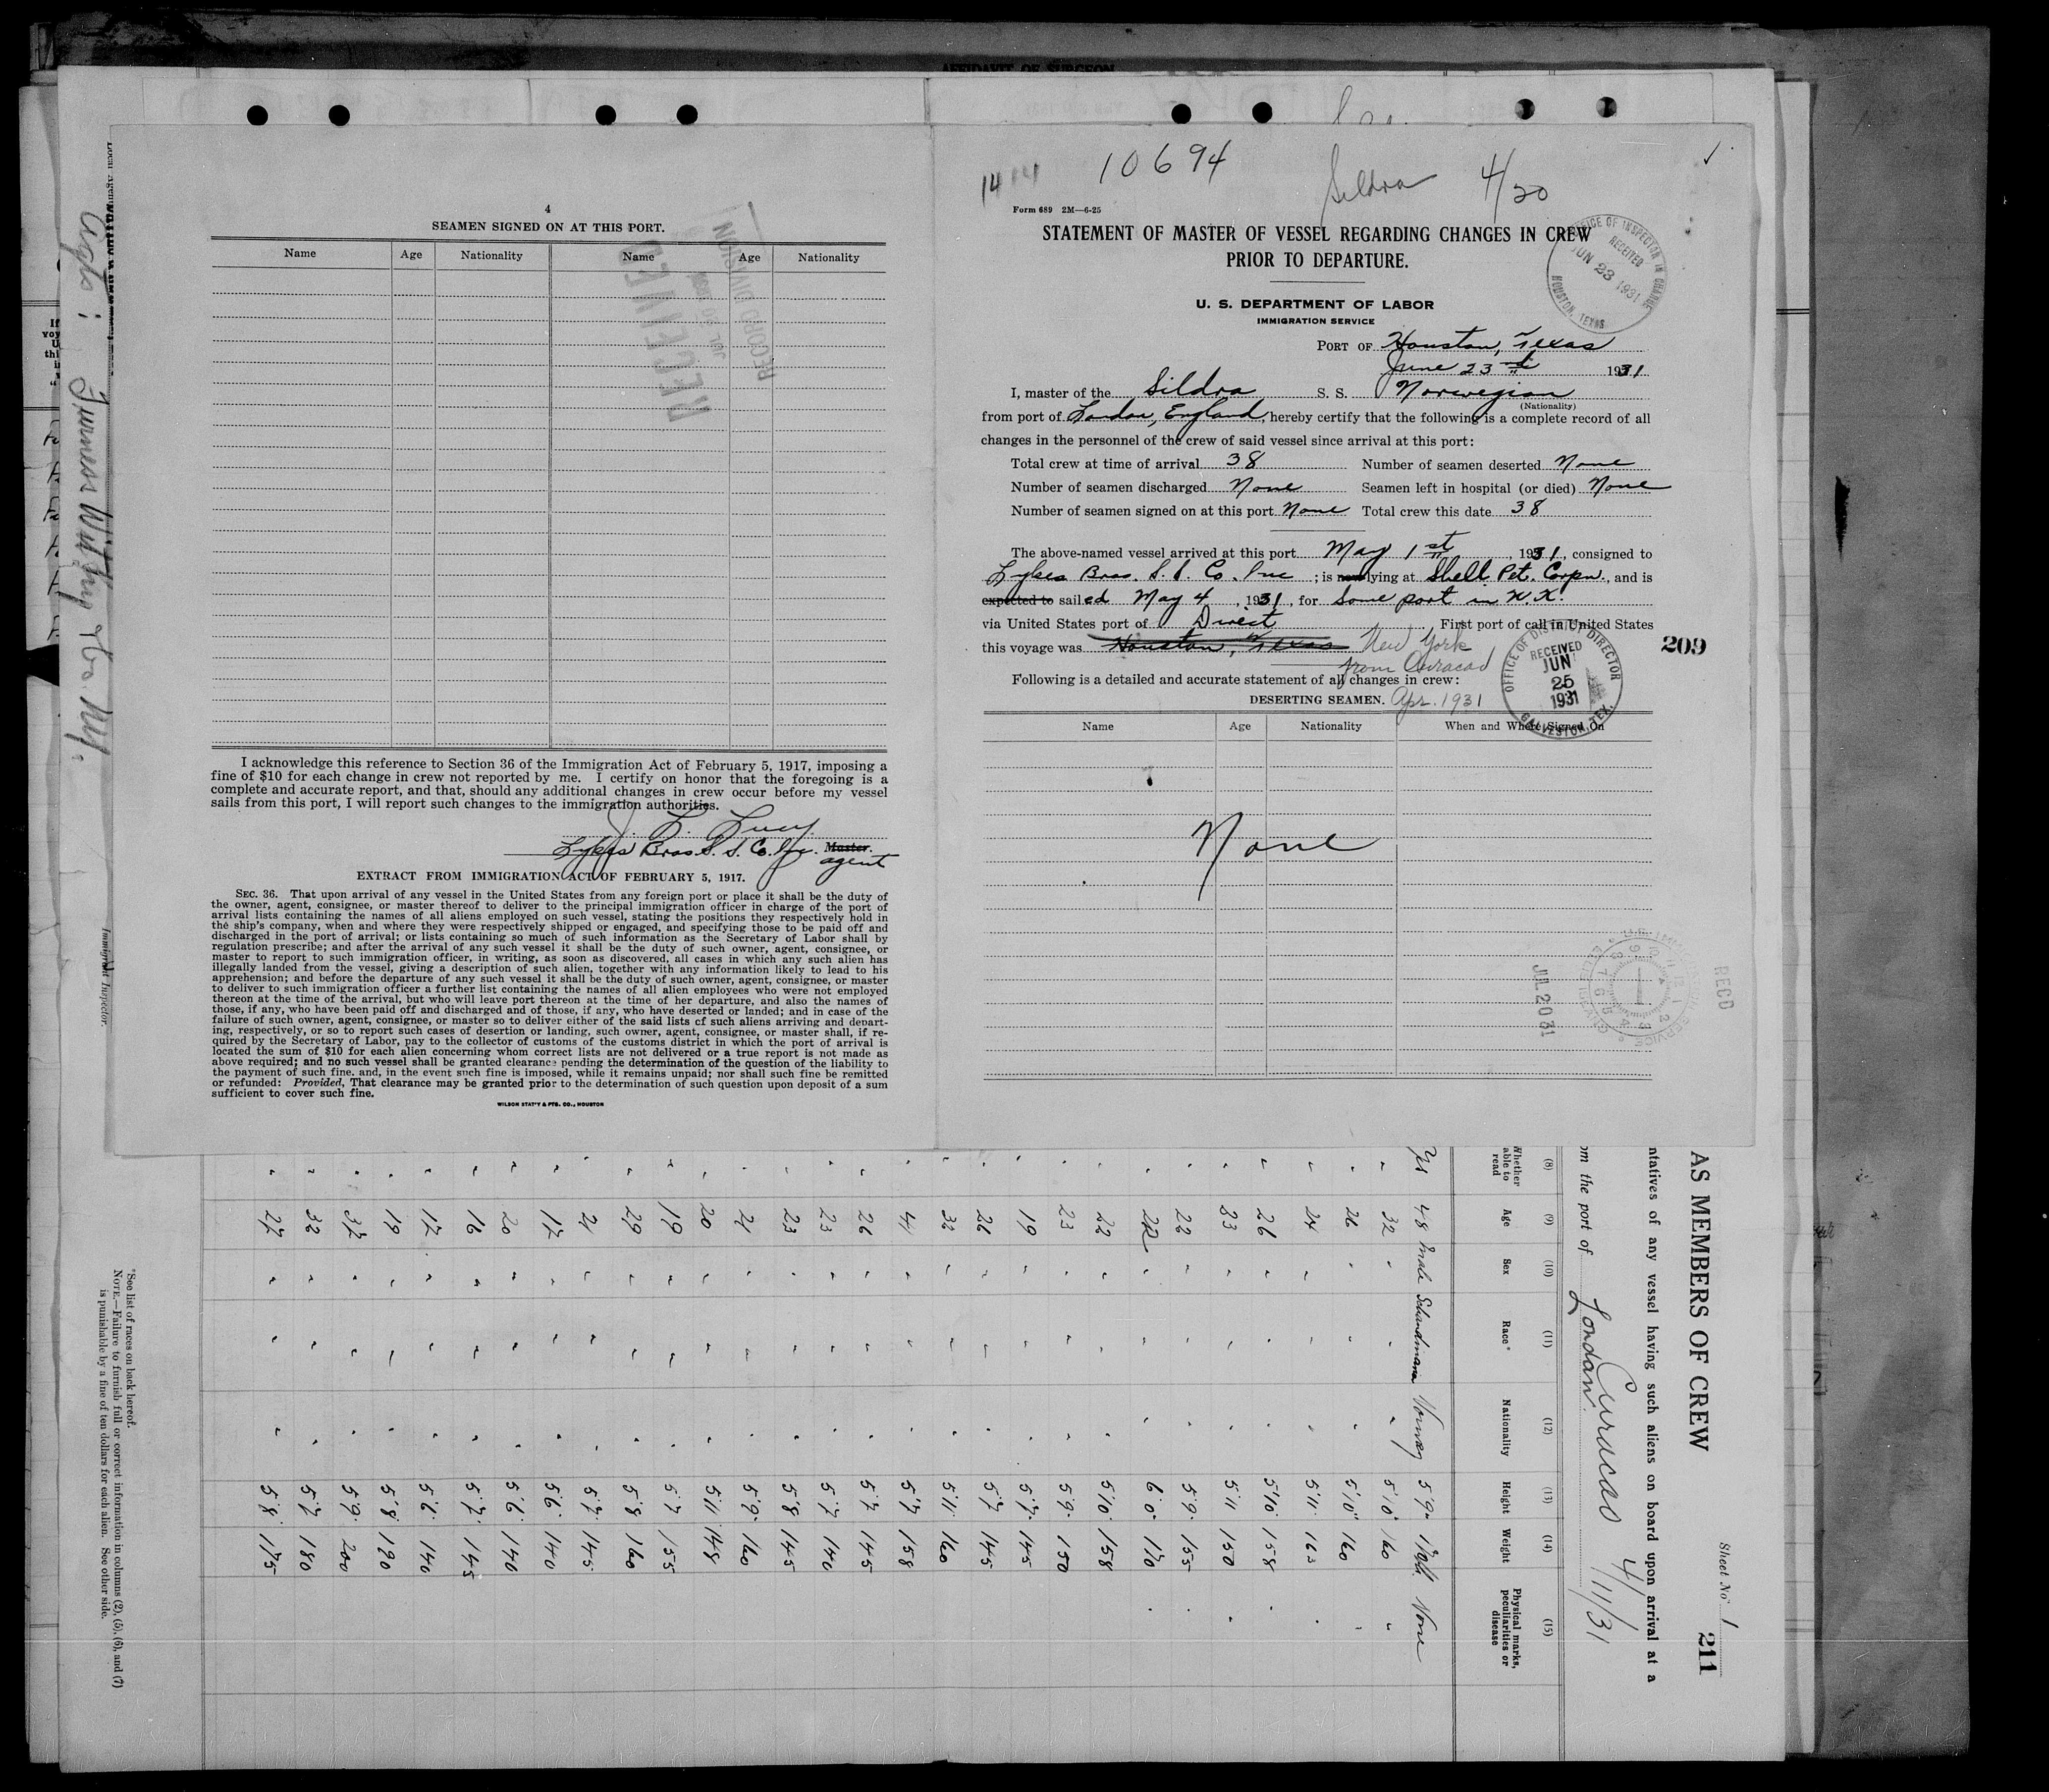 AFFIDAVIT OF SURGEON
4
SEAMEN SIGNED ON AT THIS PORT.
Name Age Nationality Name Age Nationality
RECEIVED
RECORD DIVISION
I acknowledge this reference to Section 36 of the Immigration Act of February 5, 1917, imposing a
fine of $10 for each change in crew not reported by me. I certify on honor that the foregoing is a
complete and accurate report, and that, should any additional changes in crew occur before my vessel
sails from this port, I will report such changes to the immigration authorities.
Lykes Bros. S. S. Co. Inc. Master.
agent
EXTRACT FROM IMMIGRATION ACT OF FEBRUARY 5, 1917.
SEC. 36. That upon arrival of any vessel in the United States from any foreign port or place it shall be the duty of
the owner, agent, consignee, or master thereof to deliver to the principal immigration officer in charge of the port of
arrival lists containing the names of all aliens employed on such vessel, stating the positions they respectively hold in
the ship's company, when and where they were respectively shipped or engaged, and specifying those to be paid off and
discharged in the port of arrival; or lists containing so much of such information as the Secretary of Labor shall by
regulation prescribe; and after the arrival of any such vessel it shall be the duty of such owner, agent, consignee, or
master to report to such immigration officer, in writing, as soon as discovered, all cases in which any such alien has
illegally landed from the vessel, giving a description of such alien, together with any information likely to lead to his
apprehension; and before the departure of any such vessel it shall be the duty of such owner, agent, consignee, or master
to deliver to such immigration officer a further list containing the names of all alien employees who were not employed
thereon at the time of the arrival, but who will leave port thereon at the time of her departure, and also the names of
those, if any, who have been paid off and discharged and of those, if any, who have deserted or landed; and in case of the
failure of such owner, agent, consignee, or master so to deliver either of the said lists of such aliens arriving and depart-
ing, respectively, or so to report such cases of desertion or landing, such owner, agent, consignee, or master shall, if re-
quired by the Secretary of Labor, pay to the collector of customs of the customs district in which the port of arrival is
located the sum of $10 for each alien concerning whom correct lists are not delivered or a true report is not made as
above required; and no such vessel shall be granted clearance pending the determination of the question of the liability to
the payment of such fine, and, in the event such fine is imposed, while it remains unpaid; nor shall such fine be remitted
or refunded: Provided, That clearance may be granted prior to the determination of such question upon deposit of a sum
sufficient to cover such fine.
WILSON STAT'Y & PTG. CO., HOUSTON
Agts: Furness Withy & Co. NY.
Immigrant Inspector.
14 14 10694 Sildra 4/20
Form 689 2M—6-25
STATEMENT OF MASTER OF VESSEL REGARDING CHANGES IN CREW
PRIOR TO DEPARTURE.
OFFICE OF INSPECTOR IN CHARGE
RECEIVED
JUN 23 1931
HOUSTON, TEXAS
U. S. DEPARTMENT OF LABOR
IMMIGRATION SERVICE
PORT OF Houston, Texas
June 23rd 1931
I, master of the Sildra S. S. Norwegian
(Nationality)
from port of London, England, hereby certify that the following is a complete record of all
changes in the personnel of the crew of said vessel since arrival at this port:
Total crew at time of arrival 38 Number of seamen deserted None
Number of seamen discharged None Seamen left in hospital (or died) None
Number of seamen signed on at this port None Total crew this date 38
The above-named vessel arrived at this port May 1st, 1931, consigned to
Lykes Bros. S. S. Co. Inc ; is now lying at Shell Pet. Corpn., and is
expected to sailed May 4, 1931, for Some port in U.K.
via United States port of Direct First port of call in United States
this voyage was Houston, Texas New York
from Curacao
Following is a detailed and accurate statement of all changes in crew:
DESERTING SEAMEN. Apr. 1931
209
OFFICE OF DISTRICT DIRECTOR
RECEIVED
JUN
25
1931
GALVESTON, TEX.
Name Age Nationality When and Where Signed On
None
JUL 20 31
RECD
AS MEMBERS OF CREW
Sheet No 1
211
ntatives of any vessel having such aliens on board upon arrival at a
om the port of London. Curacao 4/11/31
(8) (9) (10) (11) (12) (13) (14) (15)
Whether able to read Age Sex Race* Nationality Height Weight Physical marks, peculiarities or disease
Yes 48 Male Norway 5'9" None
" 32 " " " 5'10" 160 "
" 26 " " " 5'10" 160 "
" 24 " " 5'11 163
" 26 " " 5'10" 158
" 23 " " 5'11 150
" 22 " " 5'9 155
" 22 " " 6'0" 170
" 22 " " 5'10 158
" 23 " " 5'9 150
" 19 " " 5'7 145
" 26 " " 5'7 145
" 32 " " 5'11 160
" 41 " " 5'7 158
" 26 " " 5'7 145
" 23 " " 5'7 140
" 23 " " 5'8 145
" 21 " " 5'9 160
" 20 " " 5'11 148
" 19 " " 5'7 155
" 29 " " 5'8 160
" 21 " " 5'7 145
" 17 " " 5'6 140
" 20 " " 5'6 140
" 16 " " 5'7 145
" 17 " " 5'6 140
" 19 " " 5'8 190
" 37 " " 5'9 200
" 32 " " 5'7 180
" 27 " " 5'8 175
*See list of races on back hereof.
NOTE.—Failure to furnish full or correct information in columns (2), (5), (6), and (7)
is punishable by a fine of ten dollars for each alien. See other side.